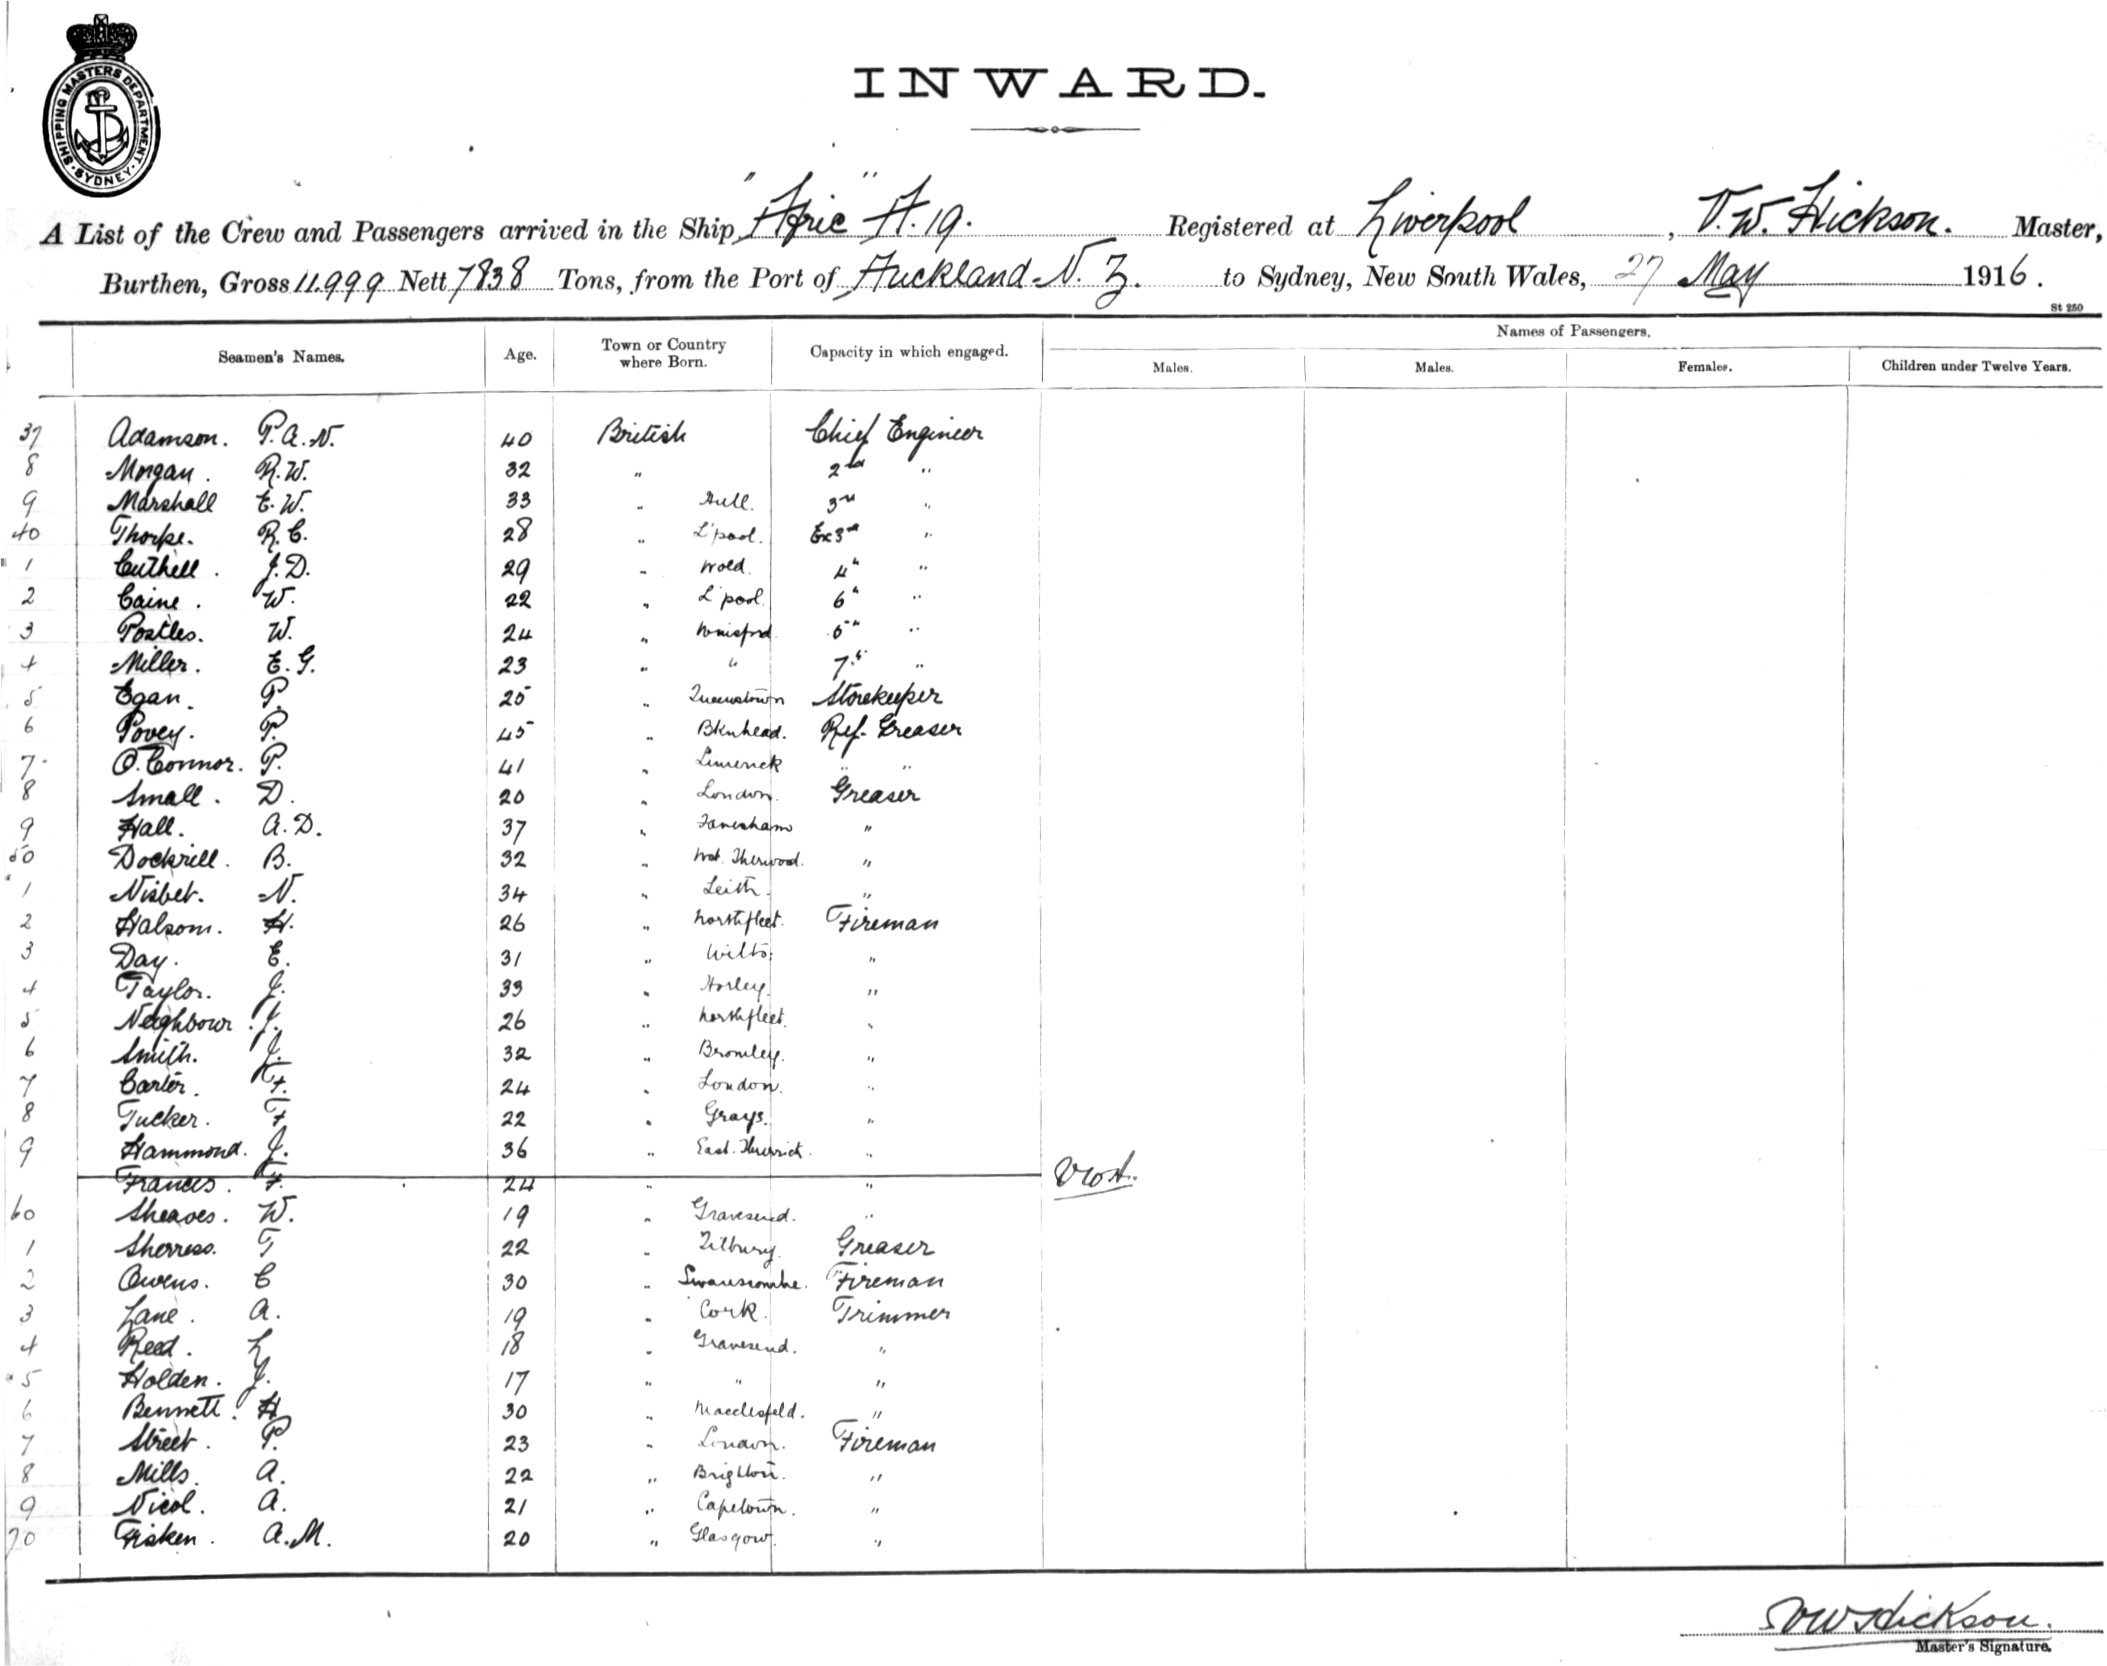 SHIPPING MASTERS DEPARTMENT. SYDNEY.
INWARD.
A List of the Crew and Passengers arrived in the Ship "Afric" A.19. Registered at Liverpool, V.W. Hickson. Master,
Burthen, Gross 11.999 Nett 7838 Tons, from the Port of Auckland N.Z. to Sydney, New South Wales, 27 May 1916.
St 250
Seamen's Names. Age. Town or Country where Born. Capacity in which engaged. Names of Passengers.
Males. Males. Females. Children under Twelve Years.
37 Adamson. P.A.N. 40 British Chief Engineer
8 Morgan. R.W. 32 " 2nd "
9 Marshall E.W. 33 " Hull. 3rd "
40 Thorpe. R.C. 28 " L'pool. Ex 3rd "
1 Cuthell. J.D. 29 " 4th "
2 Caine. W. 22 " L'pool. 6th "
3 Postles. W. 24 " Winsford 5th "
4 Miller. E.G. 23 " " 7th "
5 Egan. P. 25 " Queenstown Storekeeper
6 Povey. P. 45 " Bknhead. Ref. Greaser
7 O.Connor. P. 41 " Limerick " "
8 Small. D. 20 " London. Greaser
9 Hall. A.D. 37 " Faversham "
50 Dockrill. B. 32 " "
1 Nisbet. N. 34 " Leith. "
2 Halsom. H. 26 " Northfleet. Fireman
3 Day. E. 31 " Wilts. "
4 Taylor. J. 33 " Horley. "
5 Neighbour. J. 26 " Northfleet. "
6 Smith. J. 32 " Bromley. "
7 Carter. F. 24 " London. "
8 Tucker. F 22 " Grays. "
9 Hammond. J. 36 " East. "
Francis. F. 24 " "
60 Sheaves. W. 19 " Gravesend. "
1 Sherress. T 22 " Tilbury. Greaser
2 Owens. C 30 " Swanscombe. Fireman
3 Lane. A. 19 " Cork. Trimmer
4 Reed. L 18 " Gravesend. "
5 Holden. J. 17 " " "
6 Bennett. H 30 " Macclesfeld. "
7 Street. P. 23 " London. Fireman
8 Mills. A. 22 " Brighton. "
9 Nicol. A. 21 " Capetown. "
70 Fisken. A.M. 20 " Glasgow. "
VW Hickson.
Master's Signature.